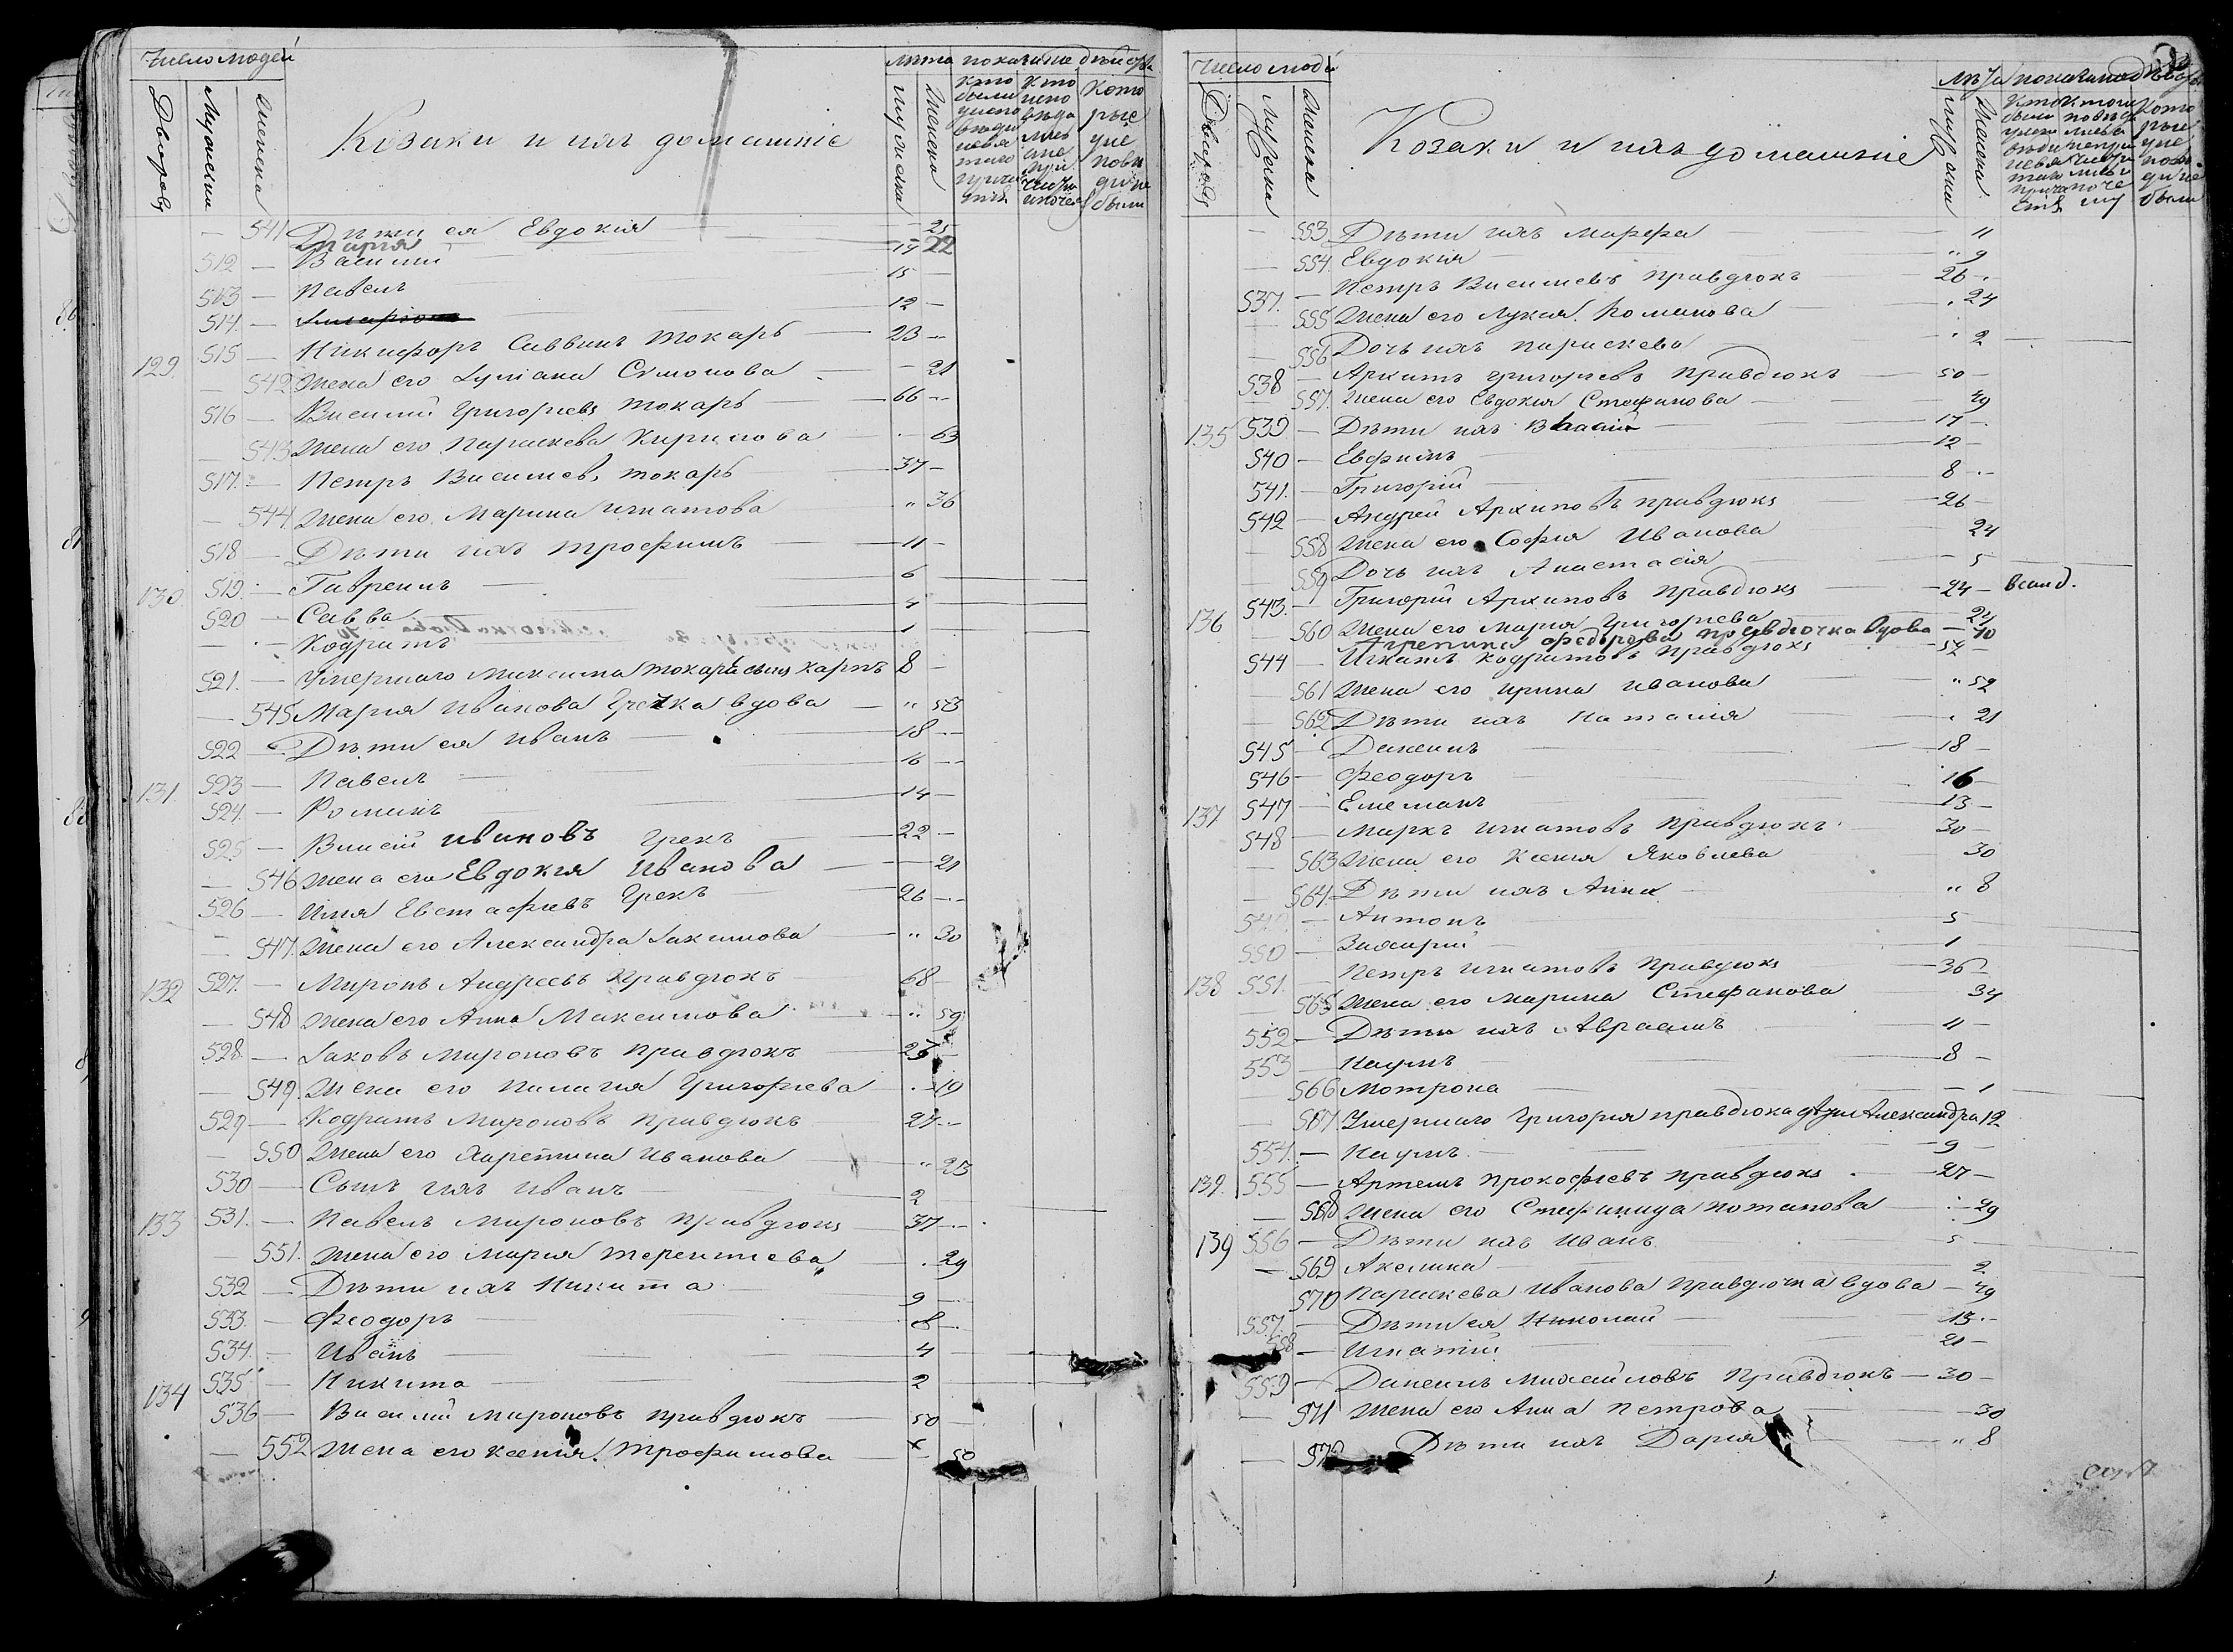 Число людей
Дворовъ
Мужеска
Женска
Козаки и ихъ домашніе
Лѣта
мужеска
женска
показаніе действа
Кто были у исповѣди и святаго причастія
Кто исповѣдались а не причастились и почему
Которые у исповѣди не были
— 541 Дѣти ея Евдокія — 25
Марія — 22
512 — Василій — 17
513 — Павелъ — 15 —
514 — 12 —
129 515 — Никифоръ Саввинъ Токарь — 23 —
— 542 Жена его Симонова — 21
516 — Василий Григориевъ Токарь — 66 —
— 543 Жена его Параскева Кирилова — 63
517 — Петръ Васильевъ Токарь — 37 —
— 544 Жена его Марина Игнатова — 36
518 — Дѣти ихъ Трофимъ — 11 —
130 519 — Гавреилъ — 6
520 — Савва — 4
— Кодратъ — 1
521 — Умершаго Максима Токаря сынъ Карпъ 8 —
— 545 Мария Иванова Гречка вдова — 53
522 — Дѣти ея Иванъ — 18 —
131 523 — Павелъ — 16 —
524 — Романъ — 14 —
525 — Ивановъ Грекъ — 22 —
— 546 Жена его Евдокия Иванова — 21
526 — Илия Евстафиевъ Грекъ — 26 —
— 547 Жена его Александра Іакимова — 30
132 527 — Миронъ Андреевъ Правдюкъ — 68 —
— 548 Жена его Анна Максимова — 59
528 — Іаковъ Мироновъ Правдюкъ — 23 —
— 549 Жена его Пилагия Григориева — 19
529 — Кодратъ Мироновъ Правдюкъ — 27 —
— 550 Жена его Харетина Иванова — 23
530 — Сынъ ихъ Иванъ — 2
133 531 — Павелъ Мироновъ Правдюкъ — 37 —
— 551 Жена его Мария Терентиева — 29
532 — Дѣти ихъ Никита — 9 —
533 — Феодоръ — 8 —
534 — Иванъ — 4
134 535 — Никита — 2
536 — Василий Мироновъ Правдюкъ — 50
— 552 Жена его Ксения Трофимова — 50
Число людей
Дворовъ
Мужеска
Женска
Козаки и ихъ домашніе
Лѣта
мужеска
женска
показаніе действа
Кто были у исповѣди и святаго причастія
Кто исповѣдались а не причастились и почему
Которые у исповѣди не были
— 553 Дѣти ихъ Марфа — 11
— 554 Евдокія — 9
537 — Петръ Василиевъ Правдюкъ — 26 —
— 555 Жена его Лукия Романова — 24
— 556 Дочь ихъ Параскева — 2
538 — Архипъ Григориевъ Правдюкъ — 50 —
— 557 Жена его Евдокия Стефанова — 49
135 539 — Дѣти ихъ — 17 —
540 — Евфимъ — 12 —
541 — Григорій — 8 —
542 — Андрей Архиповъ Правдюкъ — 26 —
— 558 Жена его София Иванова — 24
— 559 Дочь ихъ Анастасія — 5
136 543 — Григорий Архиповъ Правдюкъ — 24 —
— 560 Жена его Мария Григориева — 21
Федорова Правдючка вдова — 70
544 — Игнатъ Кодратовъ Правдюкъ — 54 —
— 561 Жена его Ирина Иванова — 52
— 562 Дѣти ихъ Наталія — 21
545 — Данеилъ — 18 —
546 — Феодоръ — 16 —
137 547 — Емелианъ — 13 —
548 — Маркъ Игнатовъ Правдюкъ — 30 —
— 563 Жена его Ксения Яковлева — 30
— 564 Дѣти ихъ Анна — 8
549 — Антонъ — 5
550 — Захарій — 1
138 551 — Петръ Игнатовъ Правдюкъ — 36 —
— 565 Жена его Марина Стефанова — 34
552 — Дѣти ихъ Авраамъ — 11 —
553 — Наумъ — 8 —
— 566 Мотрона — 1
— 567 Умершаго Григория Правдюка дѣти Александра 12
554 — Наумъ — 9 —
139 555 — Артемъ Прокофиевъ Правдюкъ — 27 —
— 568 Жена его Стефанида Потапова — 29
139 556 — Дѣти ихъ Иванъ — 5
— 569 Акелина — 2
570 Параскева Иванова Правдючка вдова — 49
557 — Дѣти ея Николай — 13 —
558 — Игнатій — 21 —
559 — Данеилъ Михайловъ Правдюкъ — 30 —
— 571 Жена его Анна Петрова — 30
— 572 Дѣти ихъ Дария — 8